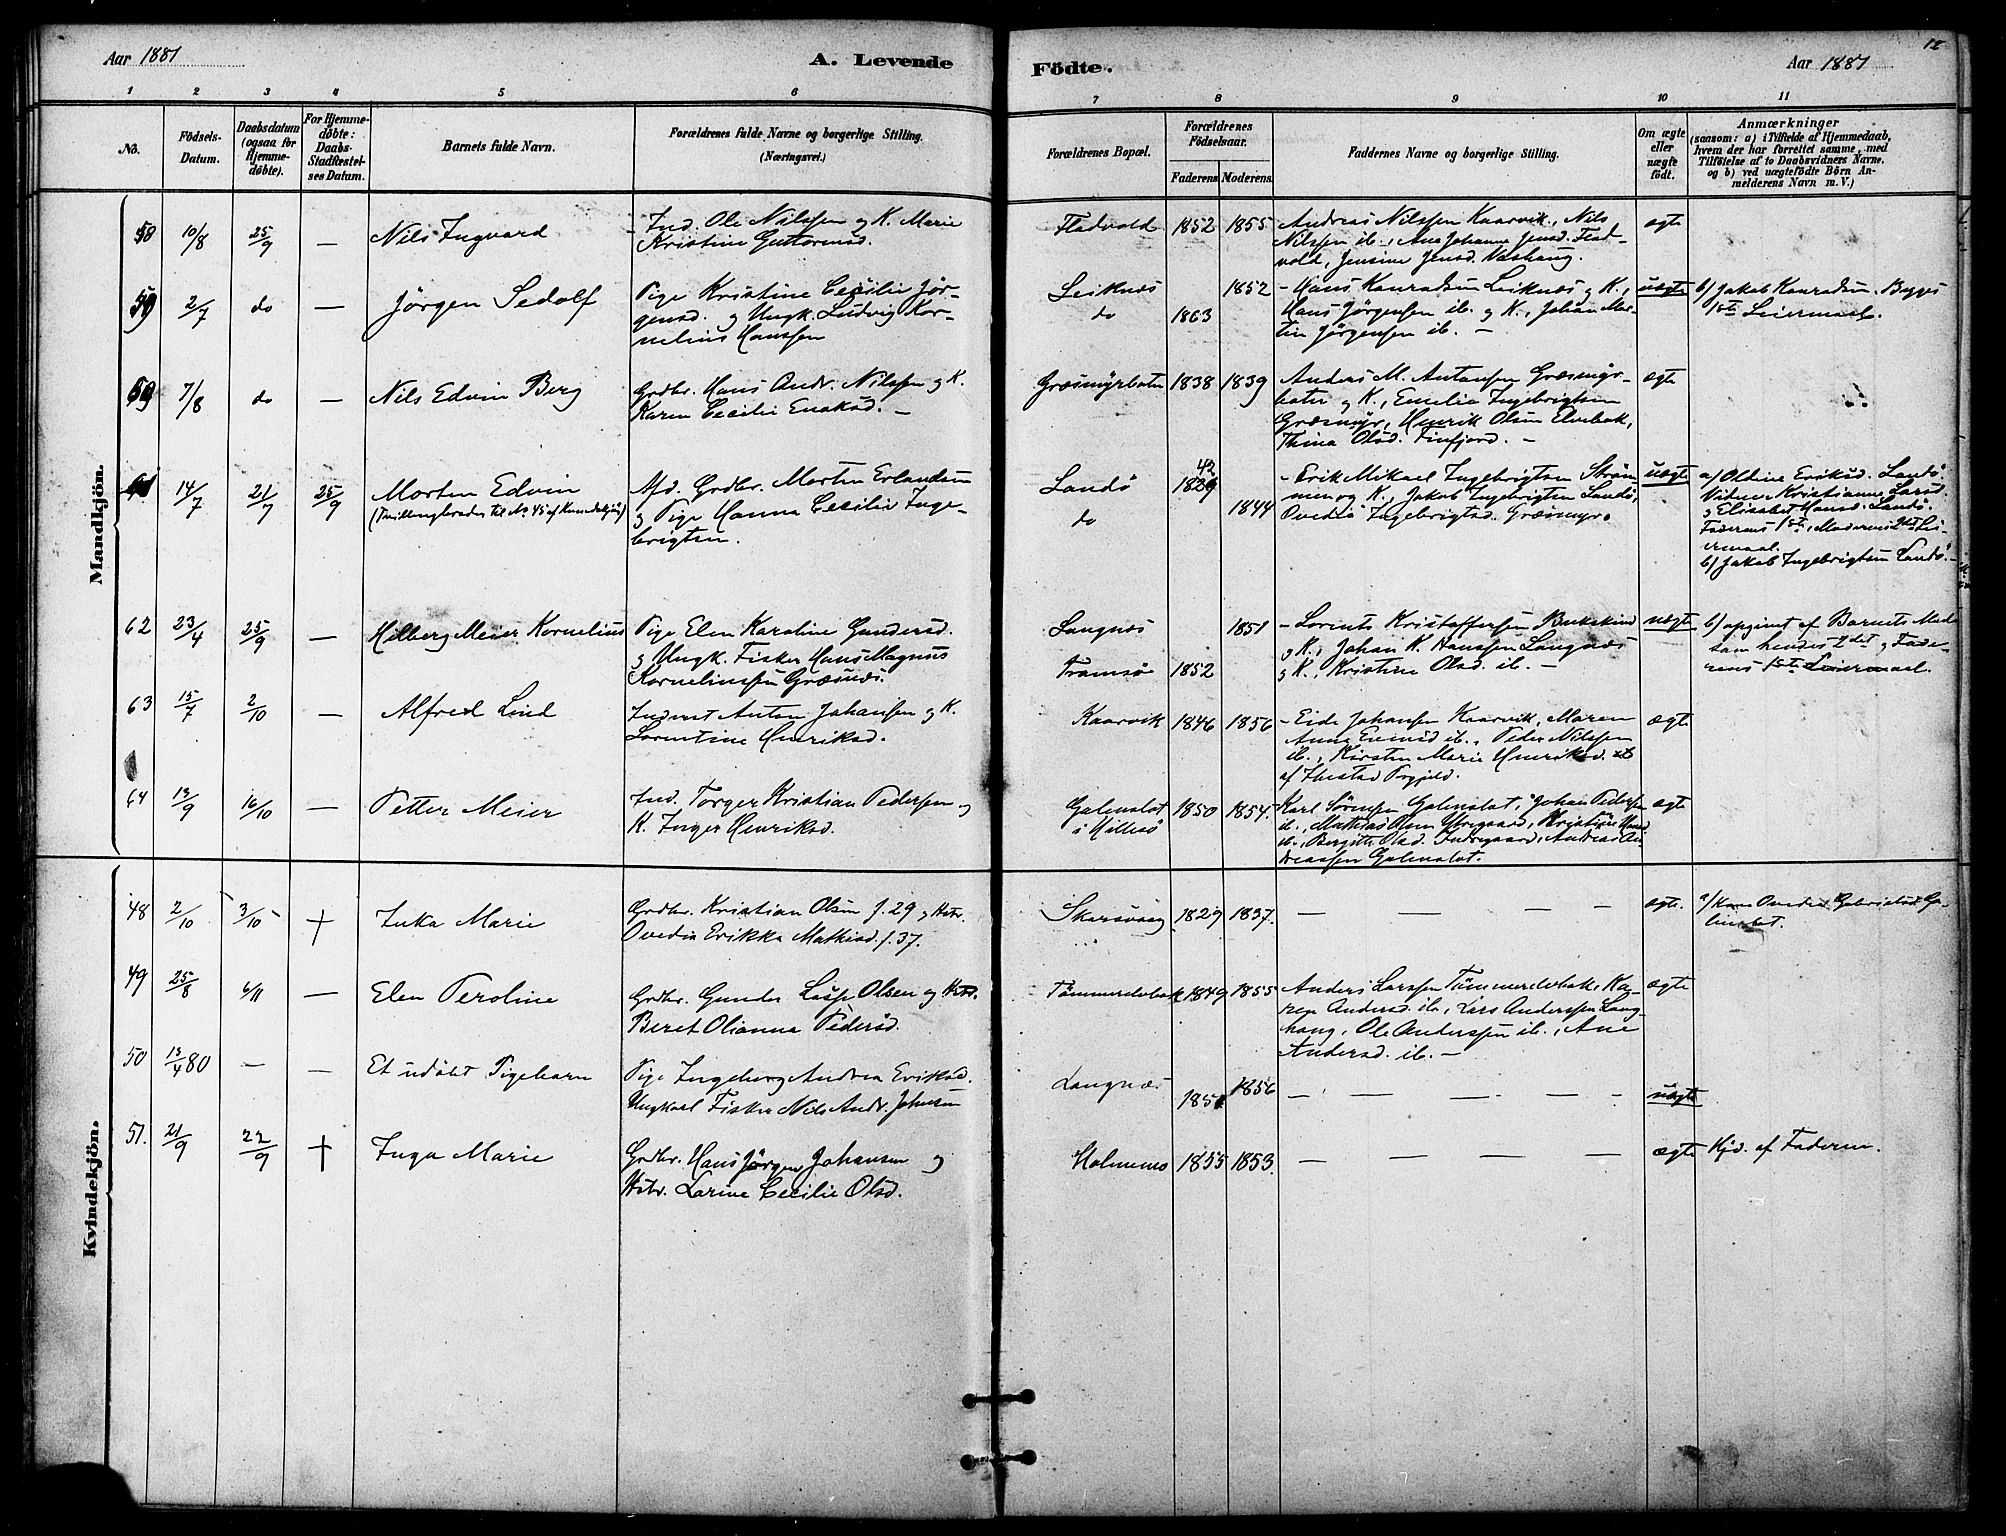 Aar 1881
A. Levende
Födte.
Aar 1881
12
1 2 3 4 5 6 7 8 9 10 11
No.
Födsels-
Datum.
Daabsdatum
(ogsaa for
Hjemme-
döbte).
For Hjemme-
döbte:
Daabs-
Stadfæstel-
ses Datum.
Barnets fulde Navn.
Forældrenes fulde Navne og borgerlige Stilling.
(Næringsvei.)
Forældrenes Bopæl.
Forældrenes
Födselsaar.
Faderens Moderens
Faddernes Navne og borgerlige Stilling.
Om ægte
eller
uægte
födt.
Anmærkninger
(saasom: a) i Tilfælde af Hjemmedaab,
hvem der har forrettet samme, med
Tilföielse af to Daabsvidners Navne.
og b) ved uægtefödte Börn An-
melderens Navn m. V.)
Mandkjön.
58 10/8 25/9 — Nils Ingvard
Ind. Ole Nilssen og K. Marie
Kristine Guttormsd.
Fladvold 1852 1855
Andreas Nilssen Kaarvik, Nils
Nilssen ib., Ane Johanne Jensd. Flad-
vold, Jensine Jensd. Vashaug.
ægte
59 2/7 do — Jörgen Sedolf
Pige Kristine Cecilie Jör-
gensd. og Ungk. Ludvig Kor-
nelius Hanssen
Leiknæs
do
1863 1852
— Hans Konradsen Leiknæs og K.,
Hans Jörgensen ib. og K., Johan Mar-
tin Jörgensen ib. —
uægte
b) Jakob Konradsen. Begges
1ste Leiermaal.
7/8 do — Nils Edvin Berg
Grdbr. Hans Andr. Nilssen og K.
Karen Cecilie Enoksd. —
Græsmyrbotn 1838 1839
Anders M. Antonsen Græsmyr-
botn og K., Emelie Ingebrigtsen
Græsmyr, Henrik Olsen Elvebak,
Thina Olsd. Finfjord. —
ægte
61 14/7 21/7 25/9 Morten Edvin
(Tvillingbroder til No 45 af Kvindekjön)
Afd. Grdbr. Morten Erlandsen
og Pige Hanna Cecilie Inge-
brigtsen.
Sandö
do
42
1829 1844
— Erik Mikael Ingebrigtsen Ström-
men og K., Jakob Ingebrigtsen Sandö,
Ovedia Ingebrigtsd. Græsmyr.
uægte
a) Oldine Eriksd. Sandö.
Vidner Kristianne Larsd.
og Elisabet Hansd. Sandö.
Faderens 1ste, Moderens 2det Lei-
ermaal.
b) Jakob Ingebrigtsen Sandö.
62 23/4 25/9 — Hilberg Meier Kornelius
Pige Elen Karoline Gundersd.
og Ungk. Fisker Hans Magnus
Kornelinssen Græsnæs.
Langnæs
Tromsö
1852 1851
— Lorents Kristoffersen Bukskind
og K., Johan K. Hanssen Langnæs
og K., Kristine Olsd. ib. —
uægte
b) opgivet af Barnets Moder
som hendes 2det og Fade-
rens 1ste Leiermaal.
63 15/7 2/10 — Alfred Lind
Inderst Anton Johansen og K.
Lorentine Henriksd.
Kaarvik 1846 1856
— Eide Johansen Kaarvik, Maren
Anna Evensd ib., Peder Nilssen
ib., Kirsten Marie Henriksd.
af Ibestad Prgjeld.
ægte
64 13/9 16/10 — Petter Meier
Ind. Torger Kristian Pedersen og
K. Inger Henriksd.
Galmslat
i Hillesö
1850 1854.
Karl Sörensen Galmslat, Johan Pedersen
ib., Mathias Olsen Ytregaard, Kristine Hansd.
ib., Bergitte Olsd. Indregaard, Andreas An-
dreassen Galmslat.
ægte
Kvindekjön.
48 2/10 3/10 † Inka Marie
Grdbr. Kristian Olsen f. 29 og Hstr.
Ovedia Erikka Mathisd. f. 37.
Skarsvaag 1829 1837. — — — —
ægte.
a/ Kone Ovedia Gabrielsd. Ga-
lmslat.
49 25/8 6/11 — Elen Peroline
Grdbr. Gunder Olsen og Hstr.
Beret Olianna Pedersd.
Tömmerelvbak 1849 1855
Anders Larssen Tömmerelvbak, Ka-
ren Andersd. ib., Lars Anderssen Lang-
haug, Ole Anderssen ib., Ane
Andersd. ib. —
ægte
50 13/4 80 — — Et udöbt Pigebarn
Pige Ingeborg Andrea Eriksd.
Ungkarl Fisker Nils Andr. Johnsen
Langnæs 1851 1856 — — — — —
uægte
51. 21/9 22/9 † Inga Marie
Grdbr. Hans Jörgen Johansen og
Hstr. Larine Cecilie Olsd.
Holmenes 1855 1853. — — — — —
ægte Hjd. af Faderen.